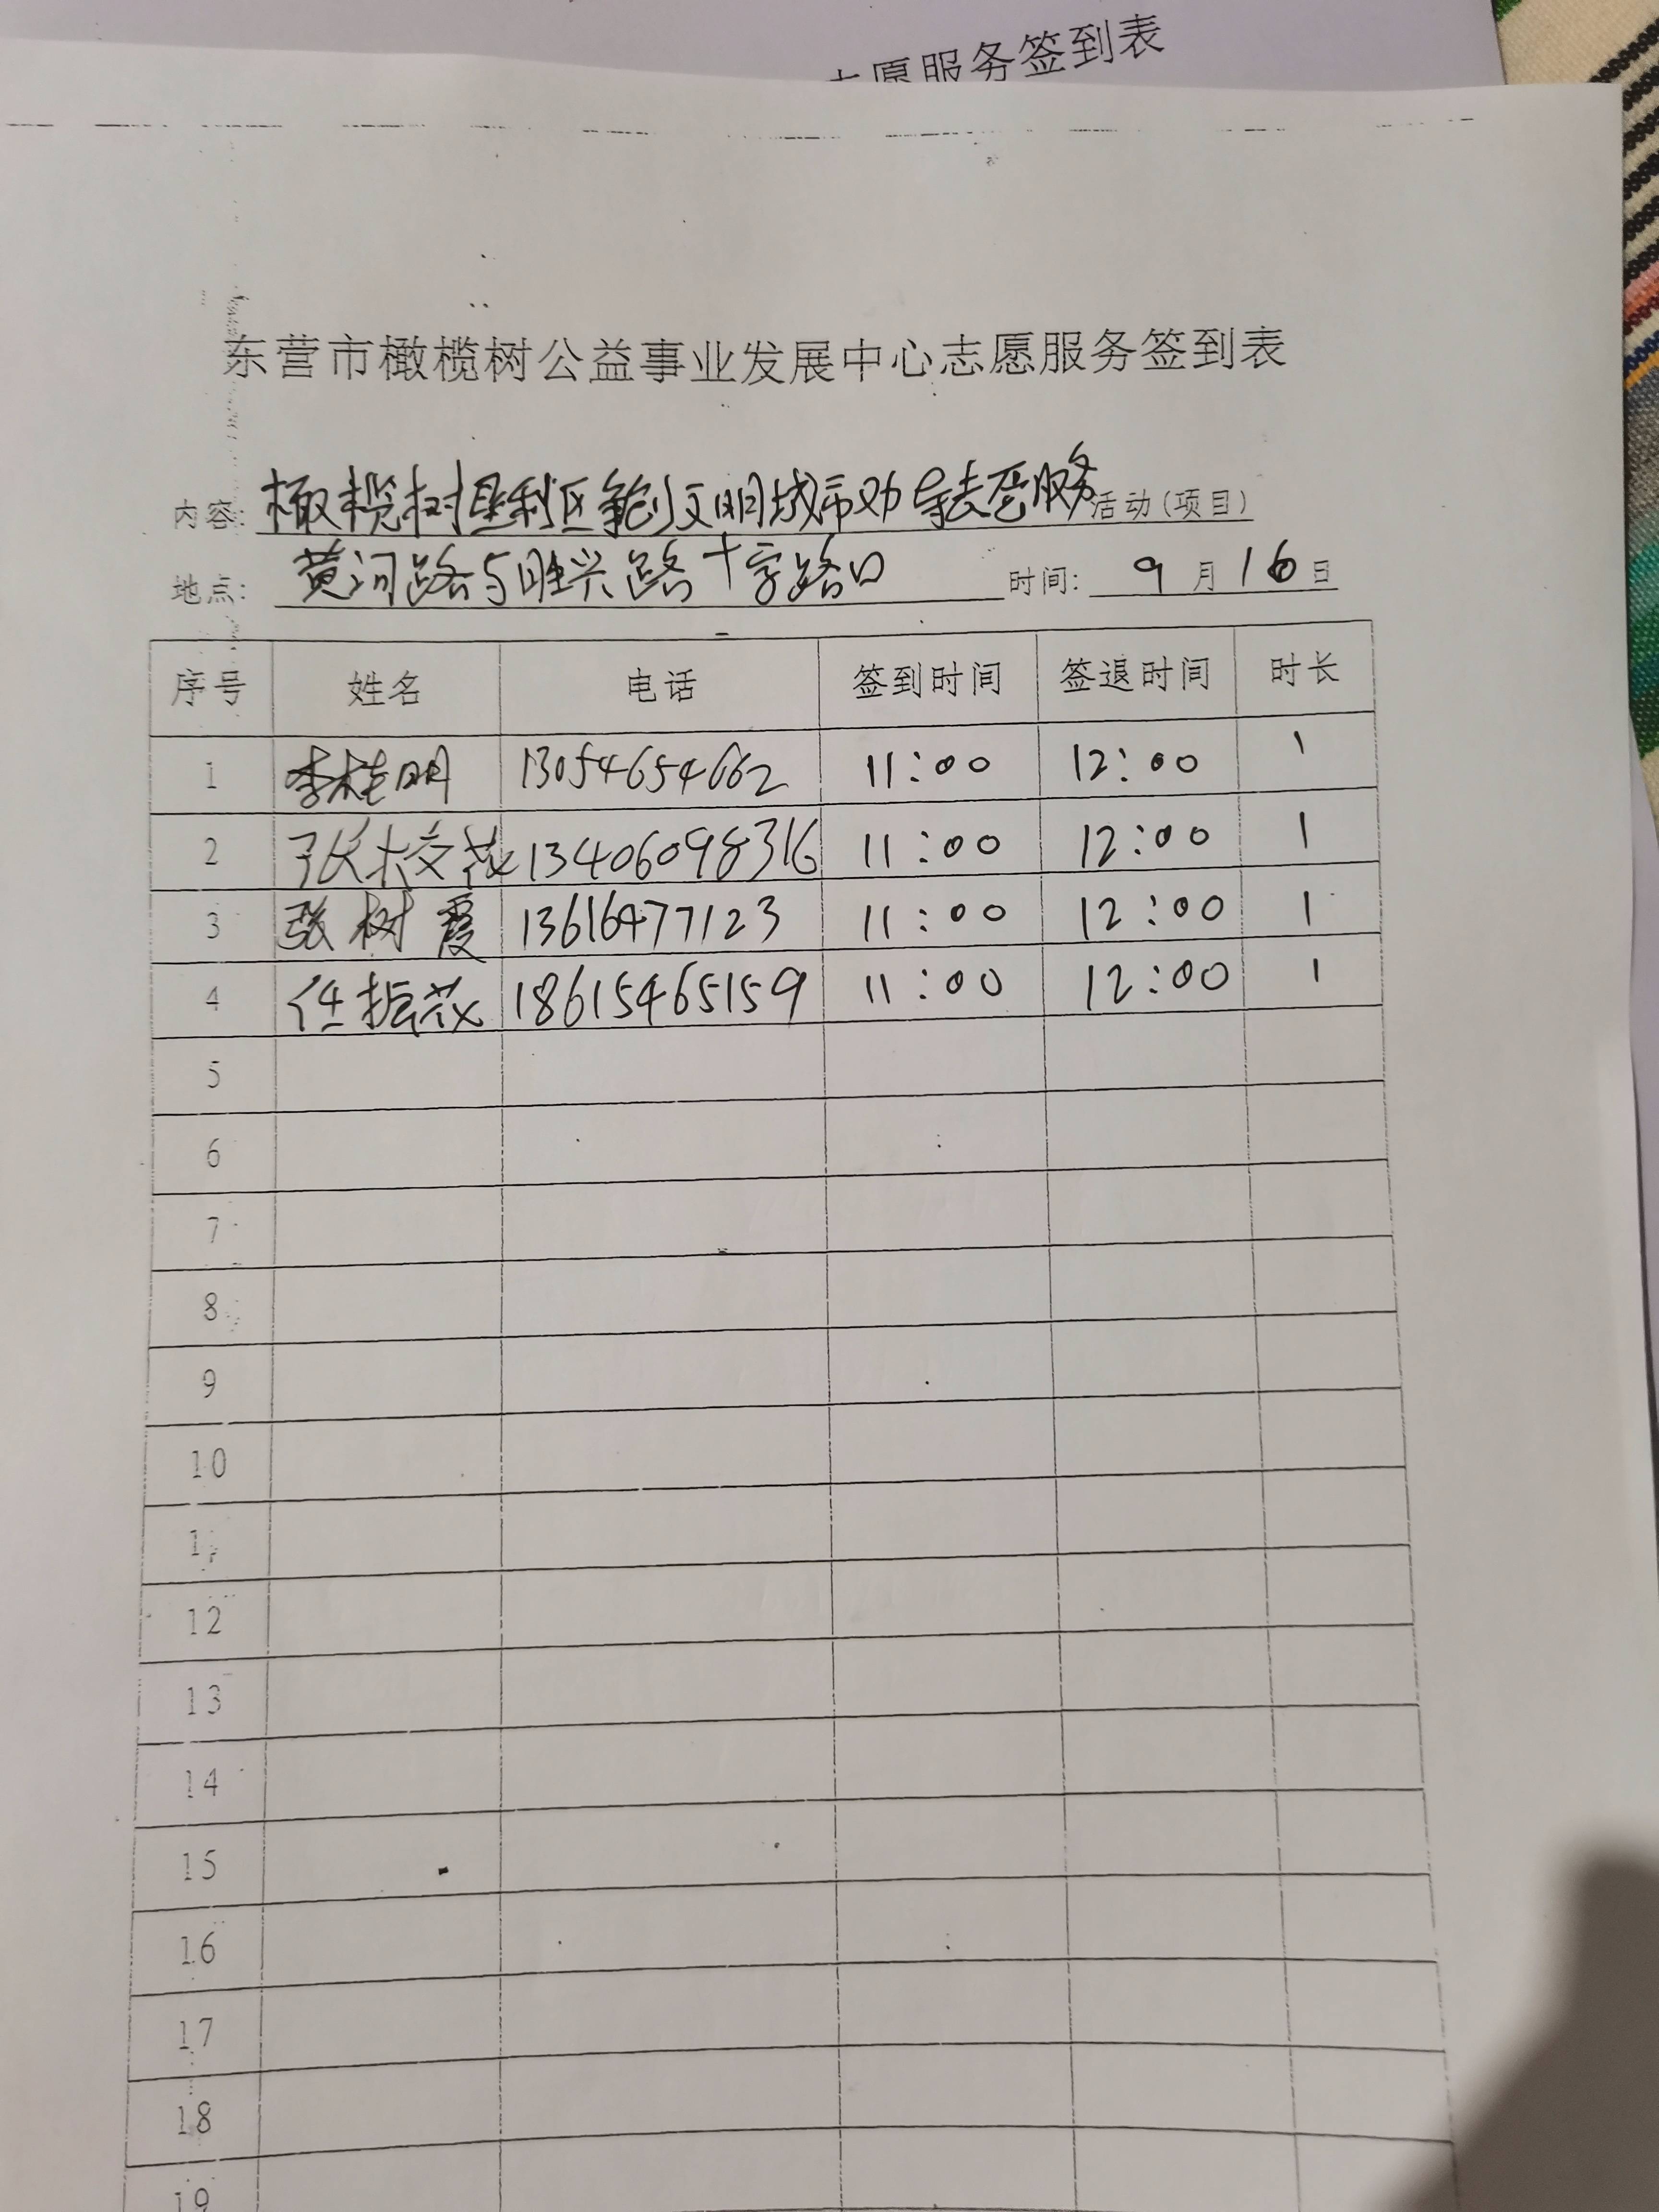 志愿服务签到表
东营市橄榄树公益事业发展中心志愿服务签到表
内容: 橄榄树垦利区争创文明城市劝导志愿服务活动(项目)
地点: 黄河路与胜兴路十字路口 时间: 9月16日
序号 姓名 电话 签到时间 签退时间 时长
1 李桂明 13054654662 11:00 12:00 1
2 张校茂 13406098316 11:00 12:00 1
3 张树霞 13616477123 11:00 12:00 1
4 任振茂 18615465159 11:00 12:00 1
5
6
7
8
9
10
11
12
13
14
15
16
17
18
19